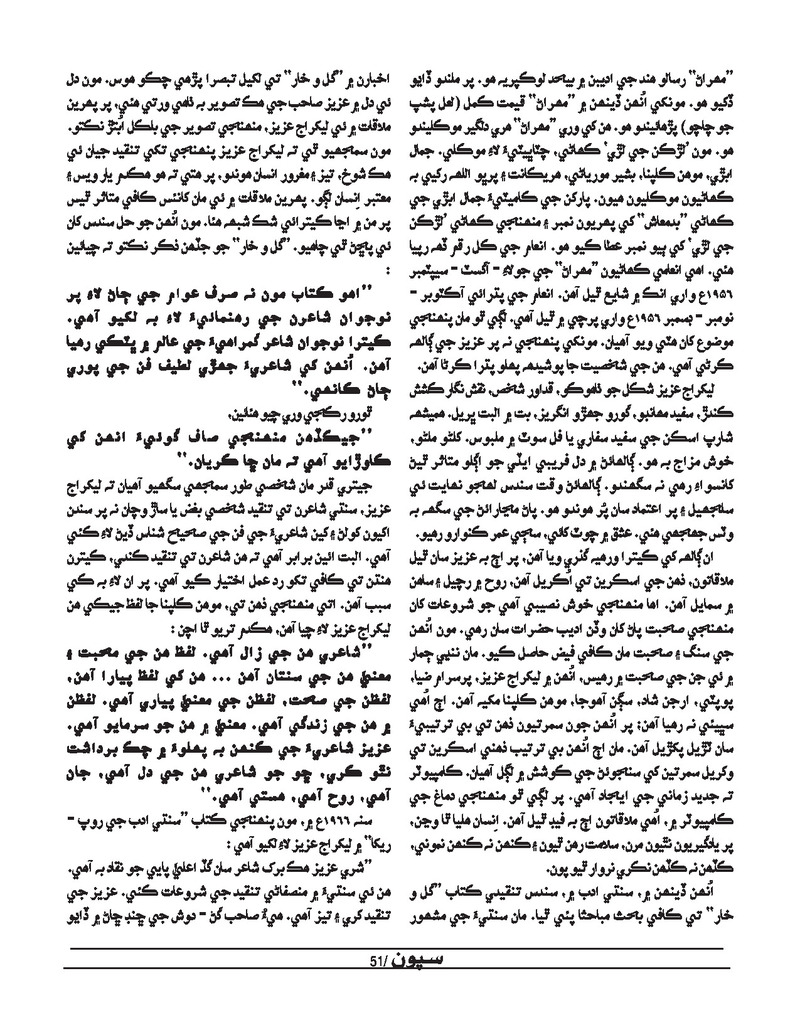 ”مھراڻ“ رسالو ھند جي اديبن ۾ بيحد لوڪپريہ ھو. پر ملندو ڏاڍو
ڏکيو ھو. مونکي اُنھن ڏينھن ۾ ”مھراڻ“ قيمت ڪمل (لعل پشپ
جو چاچو) پڙھائيندو ھو. ھن کي وري ”مھراڻ“ ھري دلگير موڪليندو
ھو. مون ’لڙڪن جي لڙي‘ ڪھاڻي، چٽاڀيٽيءَ لاءِ موڪلي. جمال
ابڙي، موھن ڪلپنا، بشير مورياڻي، ھريڪانت ۽ پرڀو اللھ رکيي بہ
ڪھاڻيون موڪليون ھيون. پارکن جي ڪاميٽيءَ جمال ابڙي جي
ڪھاڻي ”بدمعاش“ کي پھريون نمبر ۽ منھنجي ڪھاڻي ’لڙڪن
جي لڙي‘ کي ٻيو نمبر عطا ڪيو ھو. انعام جي ڪل رقم ڏھ رپيا
ھئي. اھي انعامي ڪھاڻيون ”مھراڻ“ جي جولاءِ - آگسٽ - سيپٽمبر
١٩٥٦ع واري انڪ ۾ شايع ٿيل آھن. انعام جي پترائي آڪٽوبر -
نومبر - ڊسمبر ١٩٥٦ع واري پرچي ۾ ٿيل آھي. لڳي ٿو مان پنھنجي
موضوع کان ھٽي ويو آھيان. مونکي پنھنجي نہ پر عزيز جي ڳالھ
ڪرڻي آھي. ھن جي شخصيت جا پوشيدھ پھلو پترا ڪرڻا آھن.
ليکراج عزيز شڪل جو ٺاھوڪو، قداور شخص، نقش نگار ڪشش
ڪندڙ، سفيد مھانڊو، گورو جھڙو انگريز، بت ۾ البت ڀريل. ھميشھ
شارپ اسڪن جي سفيد سفاري يا فل سوٽ ۾ ملبوس. کلڻو ملڻو،
خوش مزاج بہ ھو. ڳالھائڻ ۾ دل فريبي ايٽي جو اڳلو متاثر ٿيڻ
کانسواءِ رھي نہ سگھندو. ڳالھائڻ وقت سندس لھجو نھايت ئي
سلجھيل ۽ پر اعتماد سان پُر ھوندو ھو. پاڻ مڃارائڻ جي سگھہ بہ
وٽس جھجھي ھئي. عشق ۾ چوٽ کائي، سڄي عمر ڪنوارو رھيو.
ان ڳالھہ کي ڪيترا ورھيہ گذري ويا آھن، پر اڄ بہ عزيز سان ٿيل
ملاقاتون، ذھن جي اسڪرين تي اُڪريل آھن، روح ۾ رچيل ۽ ساھن
۾ سمايل آھن. اھا منھنجي خوش نصيبي آھي جو شروعات کان
منھنجي صحبت پاڻ کان وڏن اديب حضرات سان رھي. مون اُنھن
جي سنگ ۽ صحبت مان ڪافي فيض حاصل ڪيو. مان ننڍي ڄمار
۾ ئي جن جي صحبت ۾ رھيس، اُنھن ۾ ليکراج عزيز، پرسرام ضيا،
پوپٽي، ارجن شاد، سڳن آھوجا، موھن ڪلپنا مکيہ آھن. اڄ اُھي
سڀيئي نہ رھيا آھن؛ پر اُنھن جون سمرتيون ذھن تي بي ترتيبيءَ
سان ٽڙيل پکڙيل آھن. مان اڄ اُنھن بي ترتيب ذھني اسڪرين تي
وکريل سمرتين کي سنڀوئڻ جي ڪوشش ۾ لڳل آھيان. ڪامپيوٽر
تہ جديد زماني جي ايجاد آھي. پر لڳي ٿو منھنجي دماغ جي
ڪامپيوٽر ۾، اُھي ملاقاتون اڄ بہ فيڊ ٿيل آھن. اِنسان ھليا ٿا وڃن،
پر يادگيريون نٿيون مرن، سلامت رھن ٿيون ۽ ڪنھن نہ ڪنھن نموني،
ڪٿھن نہ ڪٿھن نڪري نروار ٿيو پون.
اُنھن ڏينھن ۾، سنڌي ادب ۾، سندس تنقيدي ڪتاب ”گل و
خار“ تي ڪافي بحث مباحثا پئي ٿيا. مان سنڌيءَ جي مشھور
اخبارن ۾ ”گل و خار“ تي لکيل تبصرا پڙھي چڪو ھوس. مون دل
ئي دل ۾ عزيز صاحب جي ھڪ تصوير بہ ٺاھي ورتي ھئي، پر پھرين
ملاقات ۾ ئي ليکراج عزيز، منھنجي تصوير جي بلڪل اُبتڙ نڪتو.
مون سمجھيو ٿي تہ ليکراج عزيز پنھنجي تکي تنقيد جيان ئي
ھڪ شوخ، تيز ۽ مغرور انسان ھوندو، پر ھتي تہ ھو ھڪدم يار ويس ۽
معتبر اِنسان لڳو. پھرين ملاقات ۾ ئي مان کانئس ڪافي متاثر ٿيس
پر من ۾ اڃا ڪيترائي شڪ شبھہ ھئا. مون اُنھن جو حل سندس کان
ئي پڇڻ ٿي چاھيو. ”گل و خار“ جو جڏھن ذڪر نڪتو تہ چيائين
:
”اھو ڪتاب مون نہ صرف عوام جي ڄاڻ لاءِ پر
نوجوان شاعرن جي رھنمائيءَ لاءِ بہ لکيو آھي.
ڪيترا نوجوان شاعر گمراھيءَ جي عالم ۾ ڀٽڪي رھيا
آھن. اُنھن کي شاعريءَ جھڙي لطيف فن جي پوري
ڄاڻ ڪانھي.“
ٿورو رڪجي وري چيو ھئائين،
”جيڪڏھن منھنجي صاف گوئيءَ انھن کي
ڪاوڙايو آھي تہ مان ڇا ڪريان.“
جيتري قدر مان شخصي طور سمجھي سگھيو آھيان تہ ليکراج
عزيز، سنڌي شاعرن تي تنقيد شخصي بغض يا ساڙ وچان نہ پر سندن
اکيون کولڻ ۽ کين شاعريءَ جي فن جي صحيح شناس ڏيڻ لاءِ ڪئي
آھي. البت ائين برابر آھي تہ ھن شاعرن تي تنقيد ڪندي، ڪيترن
ھنڌن تي ڪافي تکو رد عمل اختيار ڪيو آھي. پر ان لاءِ بہ کي
سبب آھن. اتي منھنجي ذھن تي، موھن ڪلپنا جا لفظ جيڪي ھن
ليکراج عزيز لاءِ چيا آھن، ھڪدم تريو ٿا اچن :
”شاعري ھن جي زال آھي. لفظ ھن جي محبت ۽
معنيٰ ھن جي سنتان آھن ... ھن کي لفظ پيارا آھن،
لفظن جي صحت، لفظن جي معنيٰ پياري آھي. لفظن
۾ ھن جي زندگي آھي. معنيٰ ۾ ھن جو سرمايو آھي.
عزيز شاعريءَ جي ڪنھن بہ پھلوءَ ۾ چڪ برداشت
نٿو ڪري، ڇو جو شاعري ھن جي دل آھي، جان
آھي، روح آھي، ھستي آھي.“
سنہ ١٩٦٦ع ۾، مون پنھنجي ڪتاب ”سنڌي ادب جي روپ -
ريکا“ ۾ ليکراج عزيز لاءِ لکيو آھي :
”شري عزيز ھڪ برک شاعر سان گڏ اعليٰ پايي جو نقاد بہ آھي.
ھن ئي سنڌيءَ ۾ منصفاڻي تنقيد جي شروعات ڪئي. عزيز جي
تنقيد کري ۽ تيز آھي. ھيءُ صاحب گڻ - دوش جي ڇنڊ ڇاڻ ۾ ڏاڍو
سپون /51